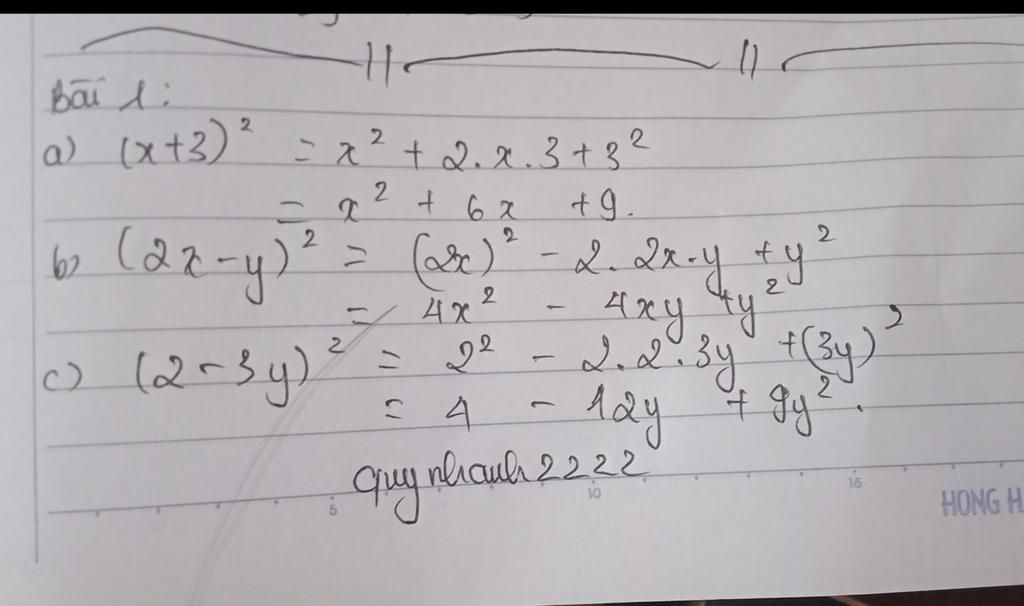 Bài 1:
a) (x+3)² = x² + 2.x.3+3²
= x² + 6x +9.
b) (2x-y)² = (2x)² - 2.2x.y +y²
= 4x² - 4xy +y²
c) (2-3y)² = 2² - 2.2.3y +(3y)²
= 4 - 12y + 9y².
quynhanh2222
5 10 15
HONG H